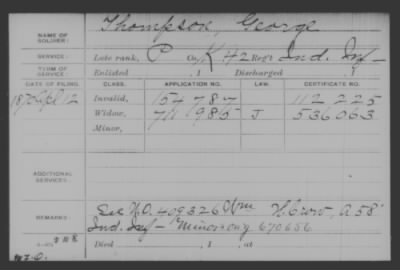 NAME OF SOLDIER: Thompson, George
SERVICE: Late rank, P Co. K 42 Reg't Ind. Inf
TERM OF SERVICE: Enlisted , 1 Discharged , 1
DATE OF FILING. CLASS. APPLICATION NO. LAW. CERTIFICATE NO.
12 Invalid, 154 787 112 225
Widow, 711 985 J 536063
Minor,
ADDITIONAL SERVICES:
REMARKS: See W.O. 409326 Wm H. Crow, A 58"
Ind. Inf - Minors orig 670656
Died , 1 , at